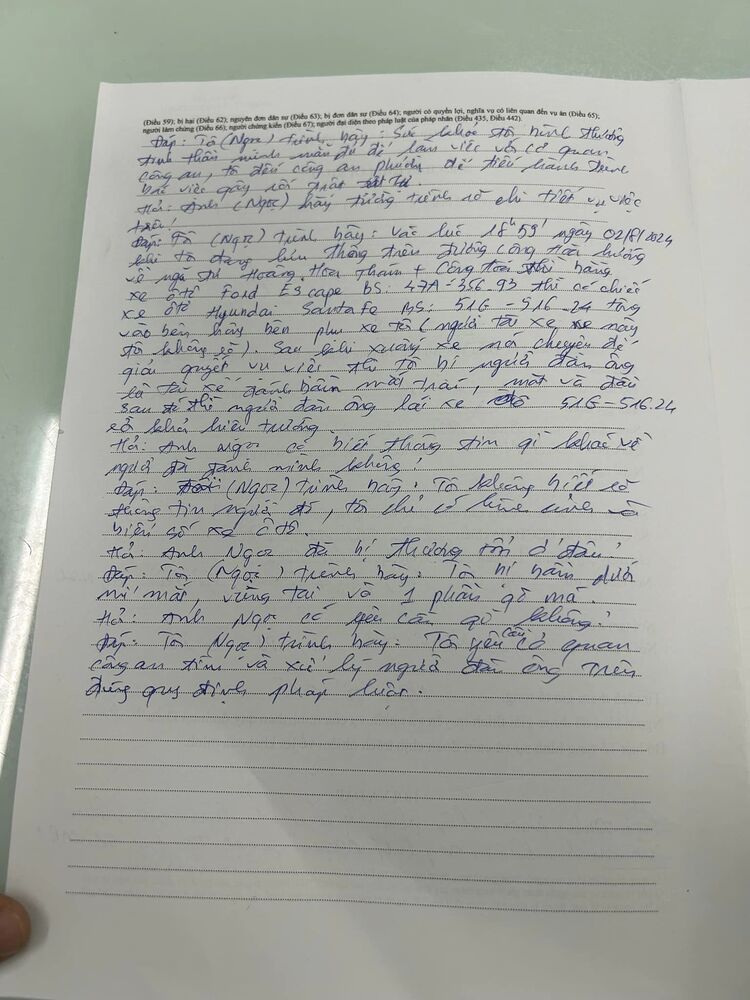 (Điều 59); bị hại (Điều 62); nguyên đơn dân sự (Điều 63); bị đơn dân sự (Điều 64); người có quyền lợi, nghĩa vụ có liên quan đến vụ án (Điều 65);
người làm chứng (Điều 66); người chứng kiến (Điều 67); người đại diện theo pháp luật của pháp nhân (Điều 435, Điều 442).
Đáp: Tôi (Ngọc) trình bày: Sức khỏe tôi bình thường
tinh thần minh mẫn đủ để làm việc với cơ quan
công an, tôi đến công an phường để tiến hành trình
báo việc gây rối trật tự
Hỏi: Anh (Ngọc) hãy tường trình rõ chi tiết vụ việc
trên!
Đáp: Tôi (Ngọc) trình bày: Vào lúc 18h59' ngày 02/8/2024
khi tôi đang lưu thông trên đường Cộng Hòa hướng
về ngã tư Hoàng Hoa Thám + Cộng Hòa thì bằng
xe ôtô Ford Escape BS: 47A-356.93 thì có chiếc
xe ôtô Hyundai Santa Fe BS: 51G-516.24 tông
vào bên hông bên phụ xe tôi (người tài xế xe này
tôi không rõ). Sau khi xuống xe nói chuyện để
giải quyết vụ việc thì tôi bị người đàn ông
là tài xế đánh bầm mắt trái, mặt và đầu
sau đó thì người đàn ông lái xe 51G-516.24
rời khỏi hiện trường.
Hỏi: Anh Ngọc có biết thông tin gì khác về
người đã đánh mình không?
Đáp: Tôi (Ngọc) trình bày: Tôi không biết rõ
thông tin người đó, tôi chỉ có hình ảnh và
biển số xe ôtô.
Hỏi: Anh Ngọc đã bị thương tổn ở đâu?
Đáp: Tôi (Ngọc) trình bày: Tôi bị bầm dưới
mí mắt, vùng tai và 1 phần gò má.
Hỏi: Anh Ngọc có yêu cầu gì không?
Đáp: Tôi (Ngọc) trình bày: Tôi yêu cầu cơ quan
công an tìm và xử lý người đàn ông trên
đúng quy định pháp luật.